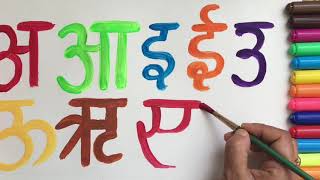 अ आ इ ई उ
ऊ ऋ ए